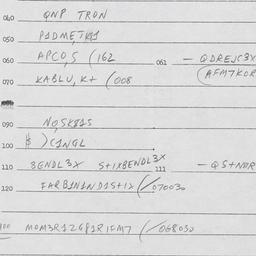 040 QNP TRON
050 P1DMETK1
060 APCO,S (162 061 — QDREJC3X
070 KABLU, K+ (008 (AFM7KOR
090 NO,SK81S
100 $ )C1NGL
110 3ENDL3X S+1XBENDL3X 111 — QS+NOR
120 FARB1N1ND1S+1X (/070030
MOM3R1Z681R1FM7 (/068030